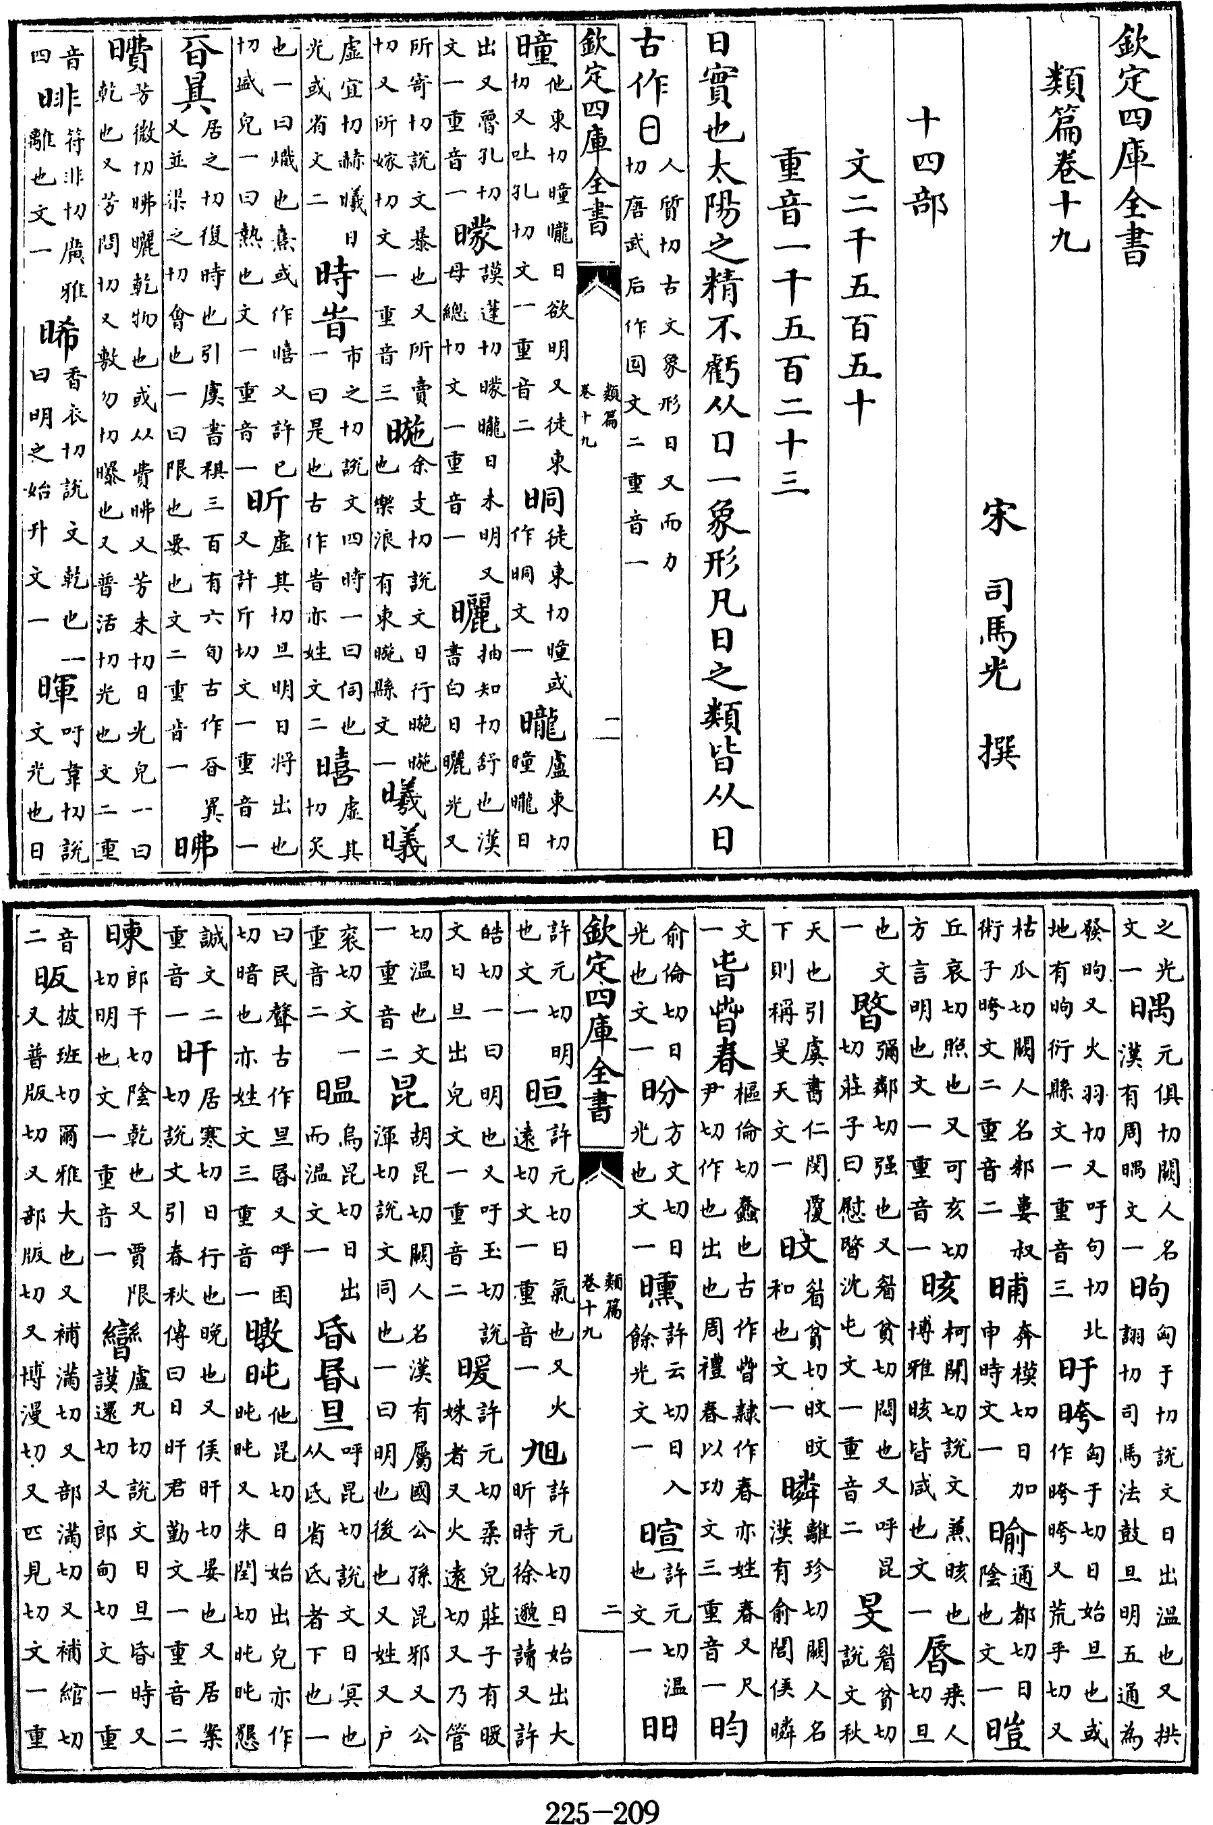 欽定四庫全書
類篇卷十九
宋 司馬光 撰
十四部
文二千五百五十
重音一千五百二十三
日實也太陽之精不虧从口一象形凡日之類皆从日
古作日人質切古文象形日又而力切唐武后作囸文二重音一
欽定四庫全書 類篇卷十九 一
曈他東切曈曨日欲明又徒東切又吐孔切文一重音二晍徒東切曈或作晍文一曨盧東切曈曨日
出又魯孔切文一重音一曚謨蓬切曚曨日未明又母總切文一重音一曬抽知切舒也漢書白日曬光又
所寄切說文暴也又所賣切又所嫁切文一重音三暆余支切說文日行暆暆也樂浪有東暆縣文一曦㬢
虛宜切赫曦日光或省文二時旹市之切說文四時一曰伺也一曰是也古作旹亦姓文二暿虛其切炙
也一曰熾也熹或作暿又許已切烕皃一曰熱也文一重音一昕虛其切旦明日將出也又許斤切文一重音一
居之切復時也引虞書稘三百有六旬古作又並渠之切會也一曰限也要也文二重音一昲
曊芳微切昲曬乾物也或从費昲又芳未切日光皃一曰乾也又芳問切又敷勿切曝也又普活切光也文二重
音四暃符非切廣雅離也文一晞香衣切說文乾也一曰明之始升文一暉吁韋切說文光也日
之光文一㬂元俱切闕人名漢有周㬂文一昫匈于切說文日出溫也又拱詡切司馬法鼓旦明五通為
發昫又火羽切又吁句切北地有昫衍縣文一重音三旴晇匈于切日始旦也或作晇晇又荒乎切又
枯瓜切闕人名邾婁叔術子晇文二重音二晡奔模切日加申時文一通都切日陰也文一暟
丘哀切照也又可亥切方言明也文一重音一晐柯開切說文兼晐也博雅晐皆咸也文一乘人切旦
也文一暋彌鄰切强也又眉貧切悶也又呼昆切莊子曰慰暋沈屯文一重音二旻眉貧切說文秋
天也引虞書仁閔覆下則稱旻天文一旼眉貧切旼旼和也文一暽離珍切闕人名漢有俞閭侯暽
文一旾萅春樞倫切蠢也古作萅隸作春亦姓春又尺尹切作也出也周禮春以功文三重音一昀
俞倫切日光也文一昐方文切日光也文一曛許云切日入餘光文一暄許元切溫也文一昍
欽定四庫全書 類篇卷十九 二
許元切明也文一晅許元切日氣也又火遠切文一重音一旭許元切日始出大昕時徐邈讀又許
皓切一曰明也又吁玉切說文日旦出皃文一重音二暖許元切柔皃莊子有暖姝者又火遠切又乃管
切溫也文一重音二昆胡昆切闕人名漢有屬國公孫昆邪又公渾切說文同也一曰明也後也又姓又戶
衮切文一重音二烏昆切日出而溫文一昏昬旦呼昆切說文日冥也从氐省氐者下也一
曰民聲古作旦昬又呼困切暗也亦姓文三重音一暾旽他昆切日始出皃亦作旽旽又朱閏切旽旽懇
誠文二重音一旰居寒切日行也晚也又侯旰切晏也又居案切說文引春秋傳曰日旰君勤文一重音二
暕郎干切陰乾也又賈限切明也文一重音一曫盧丸切說文日旦昏時又謨還切又郎甸切文一重
音二昄披班切爾雅大也又補滿切又部滿切又補綰切又普版切又部版切又博漫切又匹見切文一重
225-209